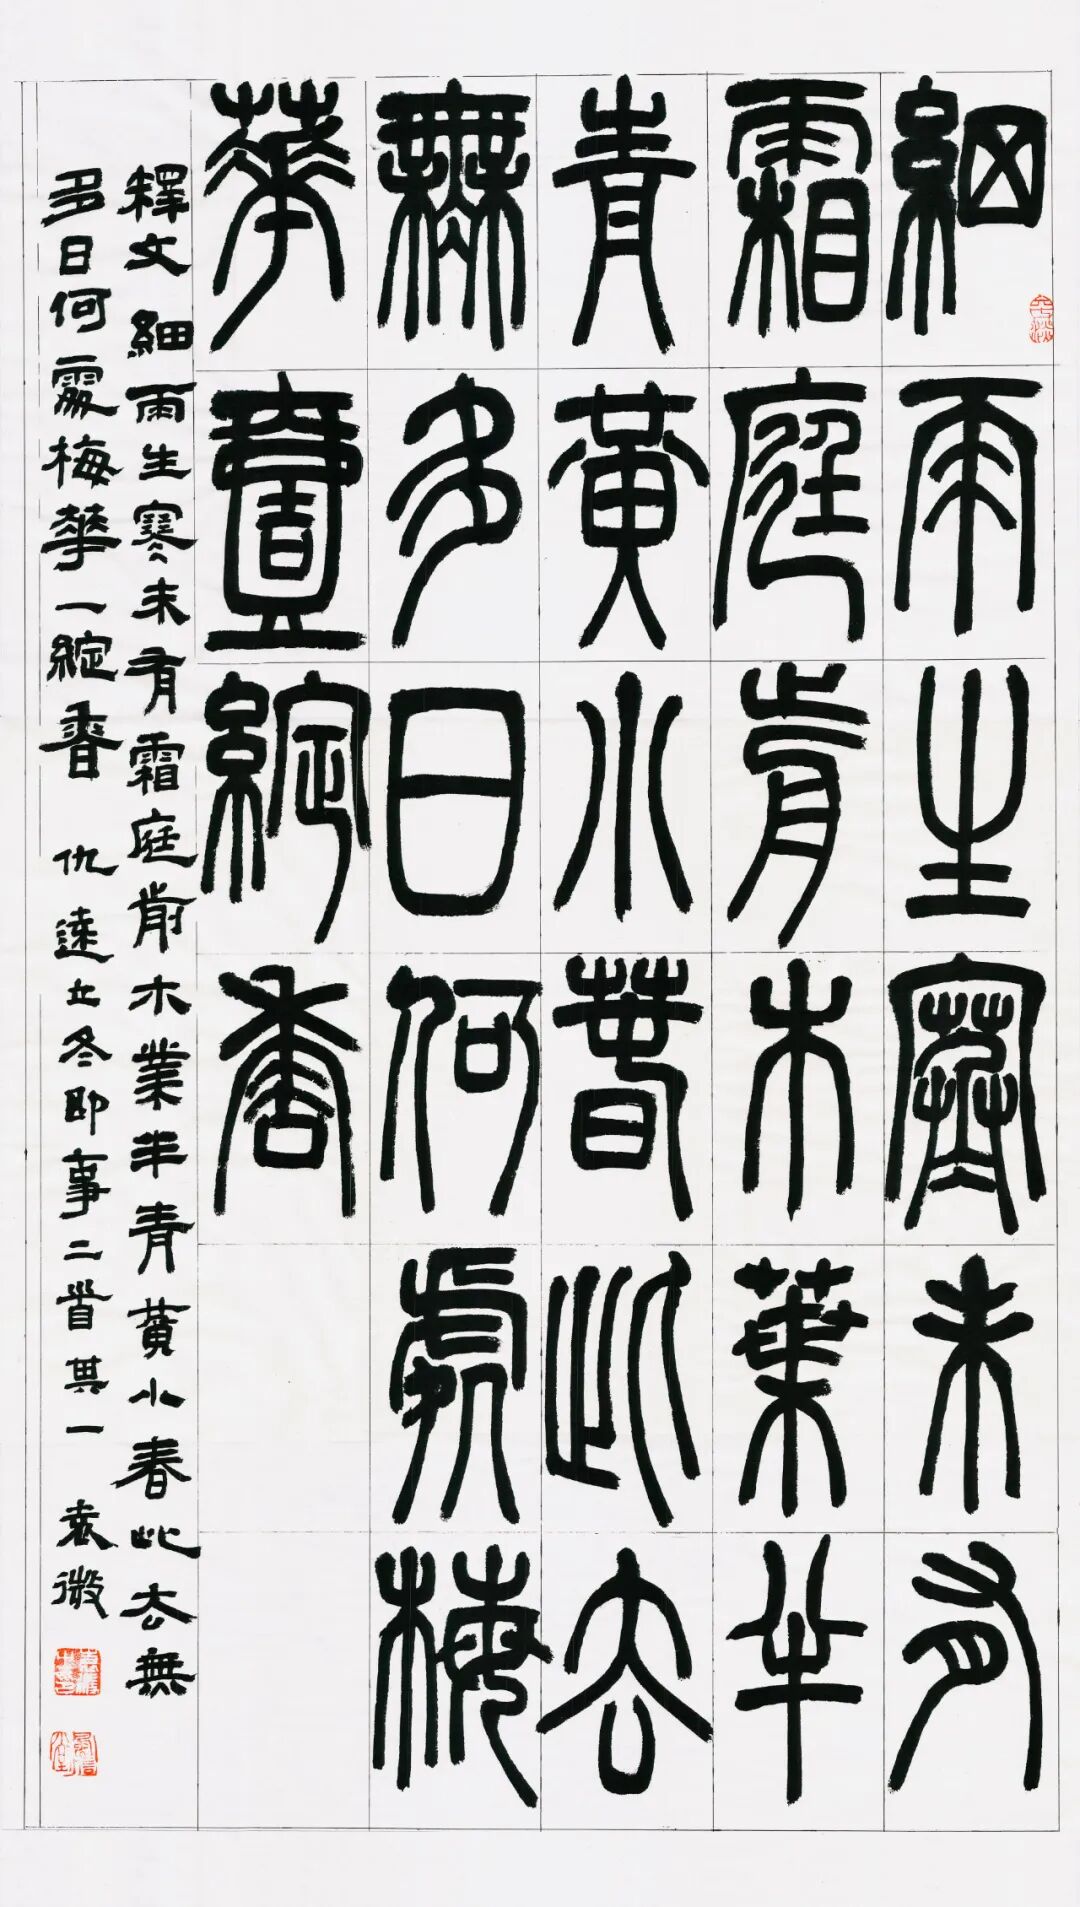 細雨生寒未有
霜庭前木葉半
青黃小春此去
無多日何處梅
華壹綻香
釋文 細雨生寒未有霜庭前木葉半青黃小春此去無
多日何處梅華一綻香 仇遠立冬即事二首其一 袁微